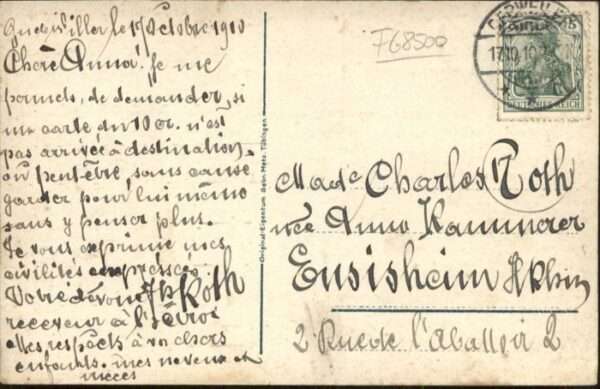 le 17 Octobre 1910
Chère Anna! Je me
permets, de demander, si
une carte du 10 cr. n'est
pas arrivée à destination
ou peut-être, sans cause
garder pour lui même
sans y penser plus.
Je vous exprime mes
civilités empressées.
Votre dévoué Roth
receveur à l'
Mes respects à vos chers
enfants. mes neveux et
nièces
Original-Eigentum Gebr. Metz, Tübingen
F68500
17.10.10
DEUTSCHES REICH
5
Made Charles Roth
née Anna Kammerer
Ensisheim H/Rhin
2 Rue de l'Abattoir 2